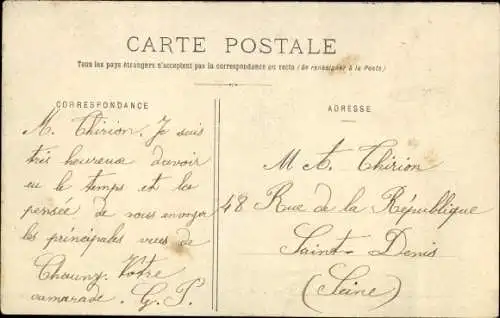 CARTE POSTALE
Tous les pays étrangers n'acceptent pas la correspondance au recto (Se renseigner à la Poste)
CORRESPONDANCE
M. Thirion. Je suis
très heureux d'avoir
eu le temps et la
pensée de vous envoyer
les principales vues de
Chauny. Votre
camarade. G. P.
ADRESSE
M A. Thirion
48 Rue de la République
Saint-Denis
(Seine)